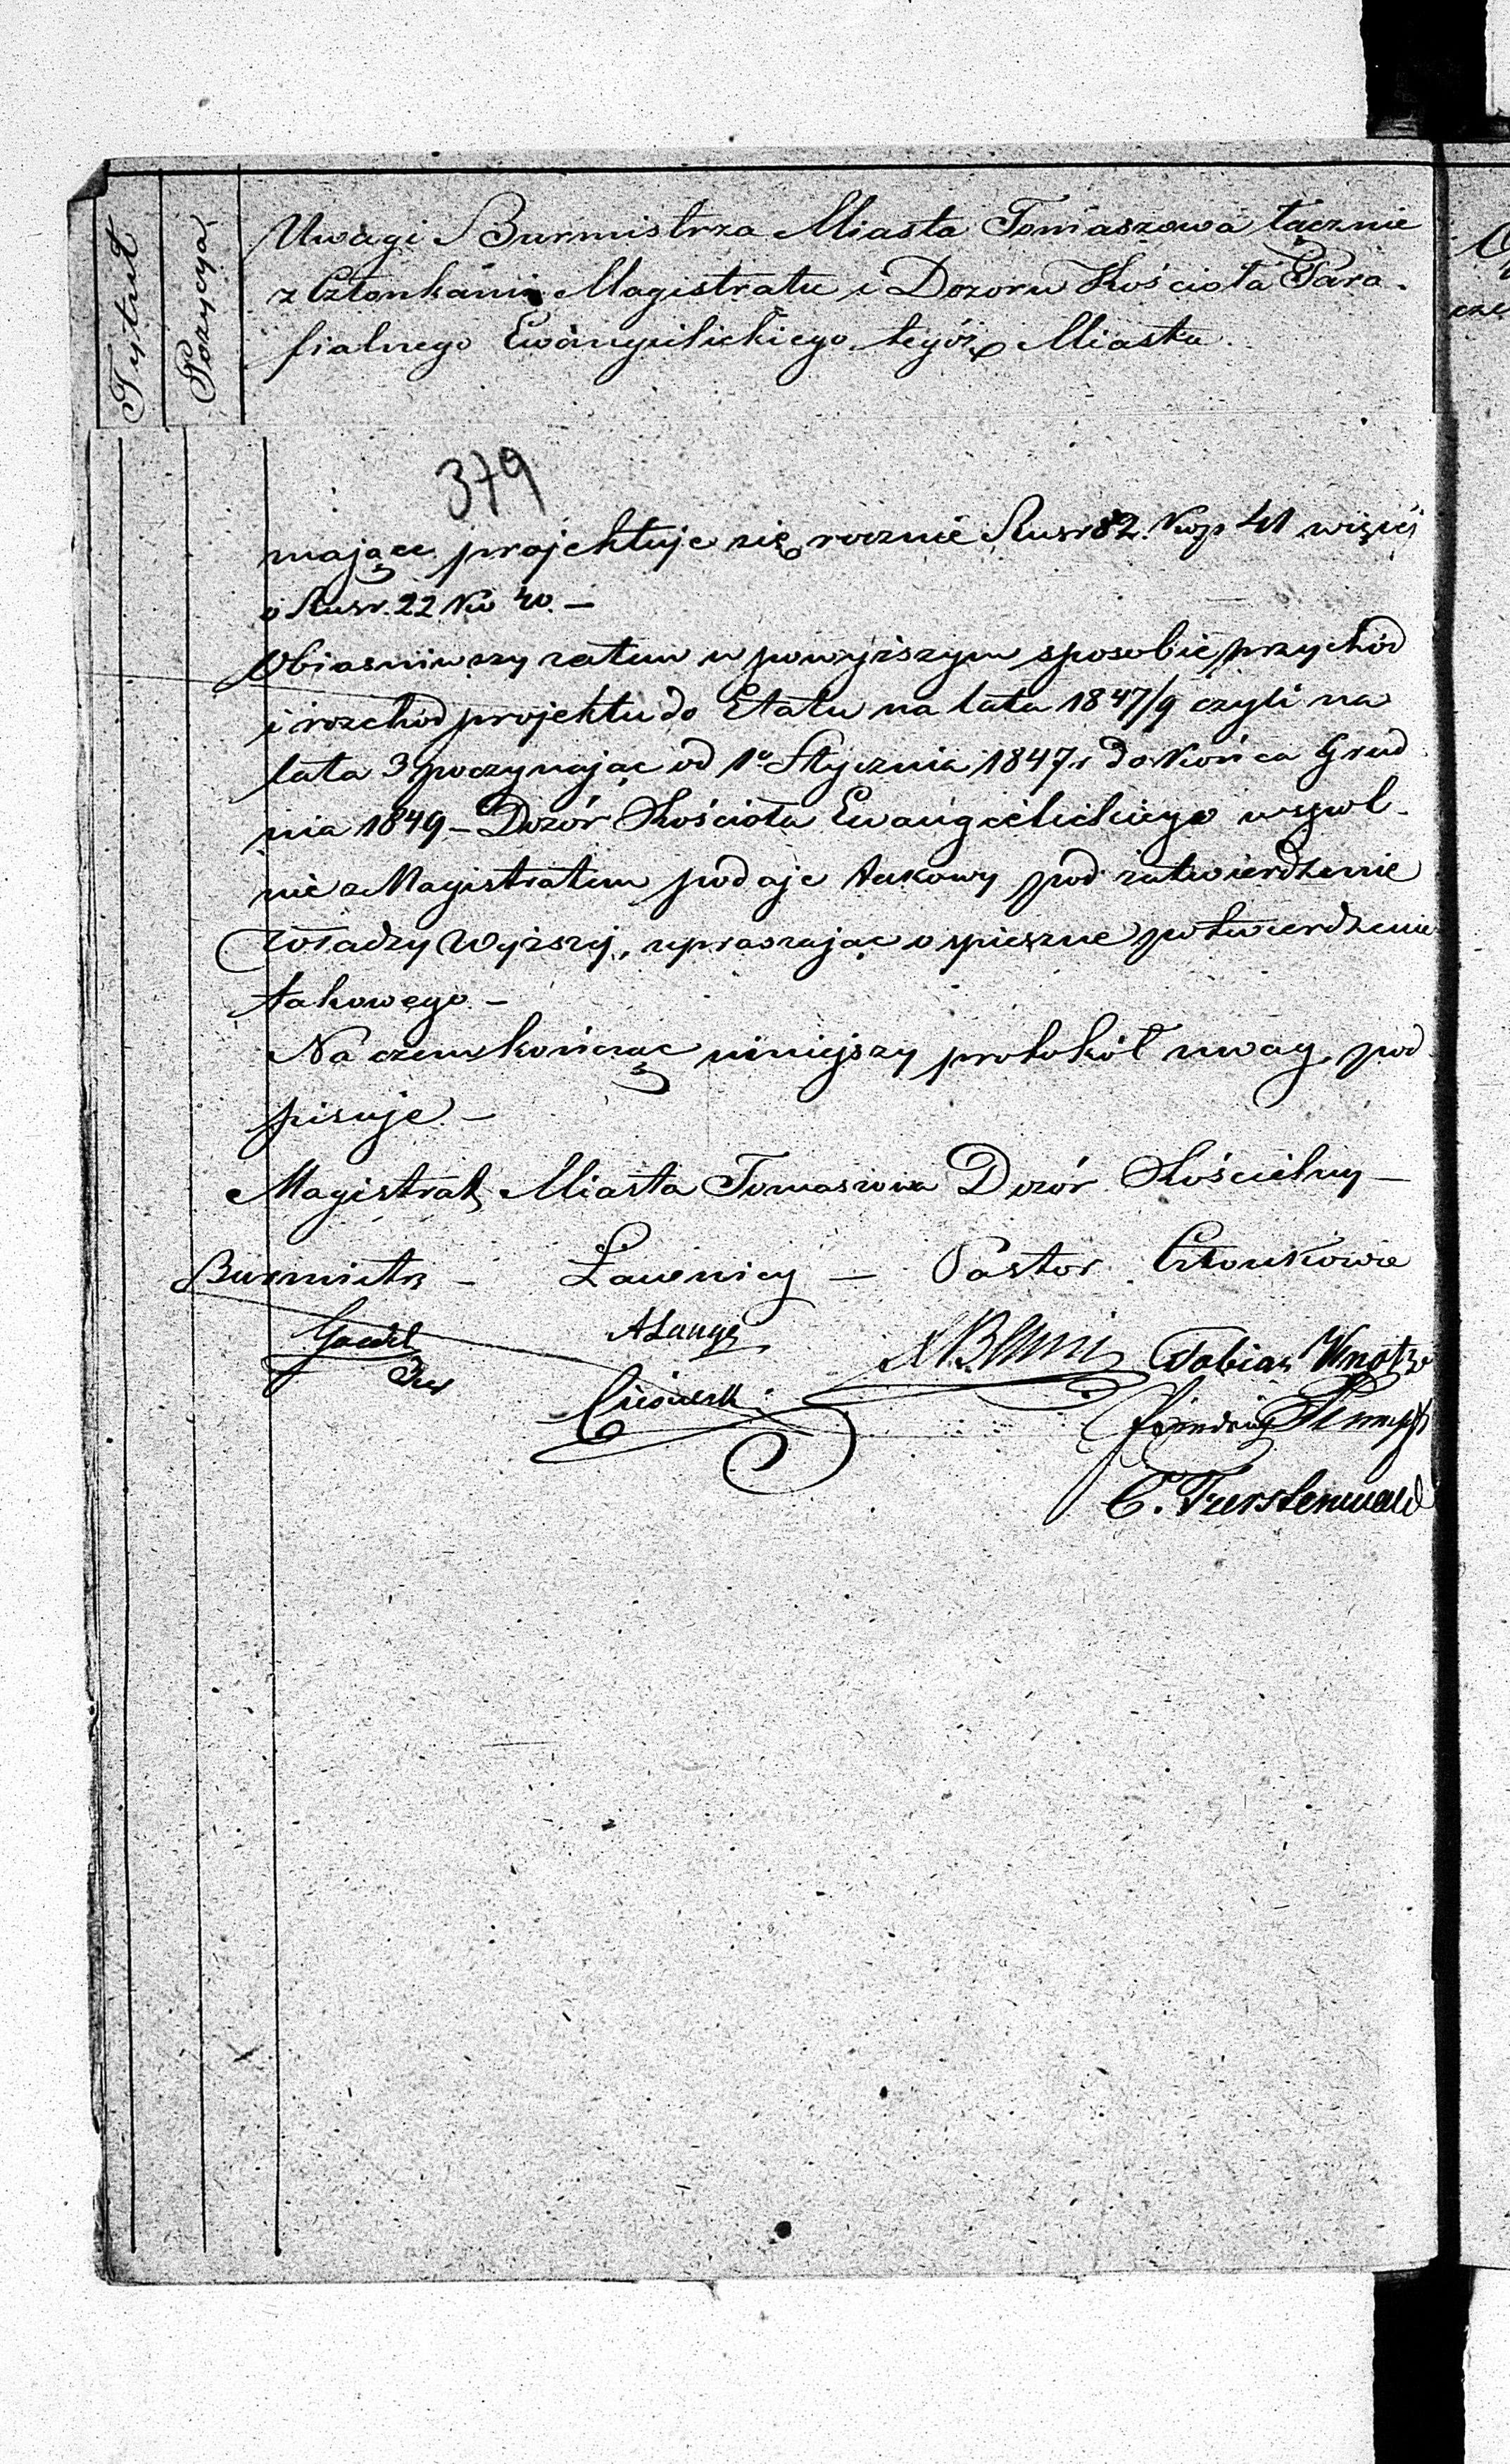 Tytuł
Pozycya
Uwagi Burmistrza Miasta Tomaszowa łącznie
z Członkami Magistratu i Dozoru Kościoła Para-
fialnego Ewangielickiego tegóż Miasta.
379
mające projektuje się rocznie Rusr 82 Kop 41 więcej
o Rusr. 22 Ko 40. —
Obiasniwszy zatem w powyższym sposobie przychód
i rozchód projektu do Etatu na lata 1847/9 czyli na
lata 3 poczynając od 1o Stycznia 1847 r do końca Grud
nia 1849 – Dozór Kościoła Ewangielickiego wspol-
nie z Magistratem podaje takowy pod zatwierdzenie
Władzy Wyższej, upraszając o spieszne potwierdzenie
takowego –
Na czem kończąc niniejszy protokół uwag pod
pisuje –
Magistrat Miasta Tomaszowa Dozór Kościelny –
Burmistrz – Ławnicy – Pastor Członkowie
A Lange
Tobias Knotze
C. Furstenwald